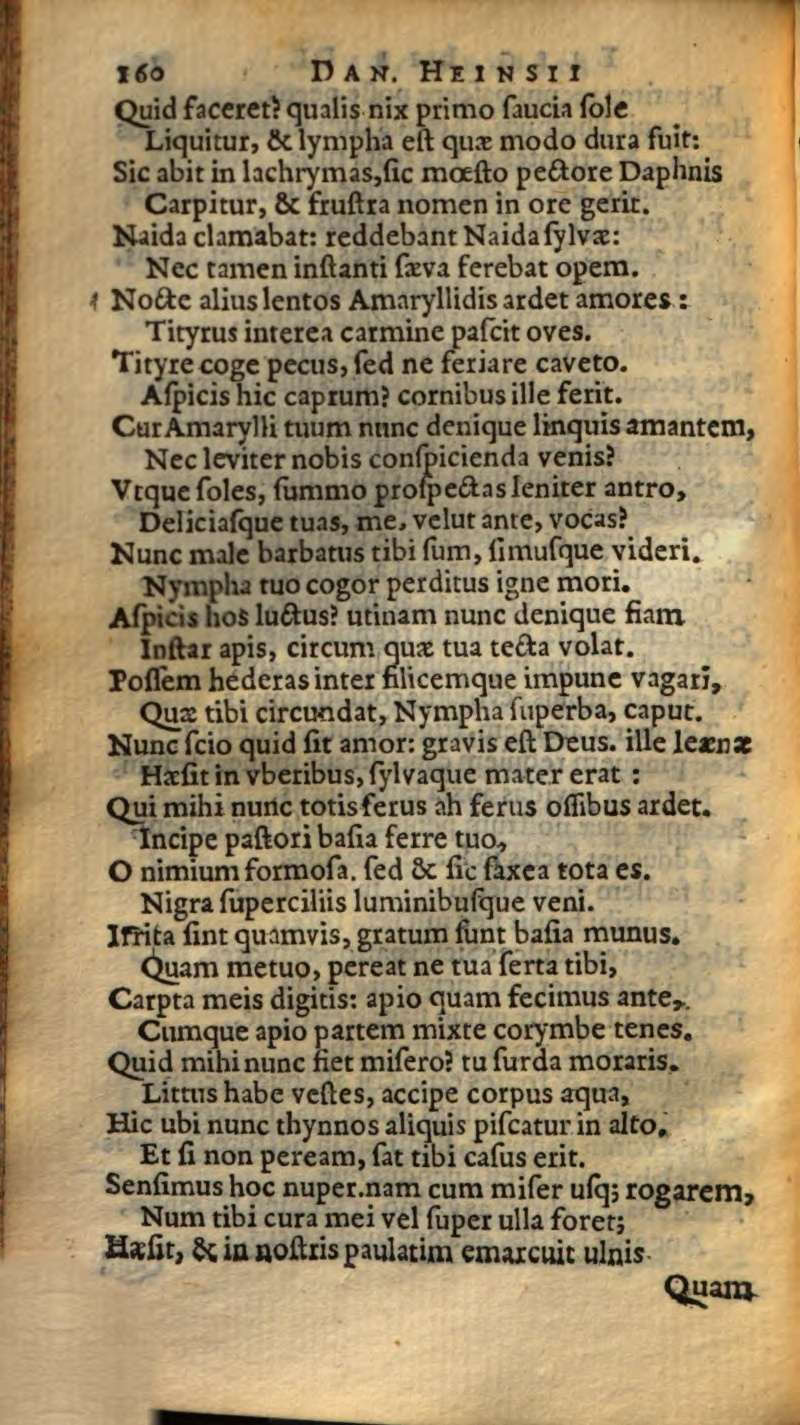 160 DAN. HEINSII
Quid faceret? qualis nix primo ſaucia ſole
Liquitur, & lympha eſt quæ modo dura fuit:
Sic abit in lachrymas, ſic mœſto pectore Daphnis
Carpitur, & fruſtra nomen in ore gerit.
Naida clamabat: reddebant Naida ſylvæ:
Nec tamen inſtanti ſæva ferebat opem.
Nocte alius lentos Amaryllidis ardet amores:
Tityrus interea carmine paſcit oves.
Tityre coge pecus, ſed ne feriare caveto.
Aſpicis hic caprum? cornibus ille ferit.
Cur Amarylli tuum nunc denique linquis amantem,
Nec leviter nobis conſpicienda venis?
Vtque ſoles, ſummo proſpectas leniter antro,
Deliciaſque tuas, me, velut ante, vocas?
Nunc male barbatus tibi ſum, ſimuſque videri.
Nympha tuo cogor perditus igne mori.
Aſpicis hos luctus? utinam nunc denique fiam
Inſtar apis, circum quæ tua tecta volat.
Poſſem hederas inter filicemque impune vagari,
Quæ tibi circundat, Nympha ſuperba, caput.
Nunc ſcio quid ſit amor: gravis eſt Deus. ille leænæ
Hæſit in vberibus, ſylvaque mater erat:
Qui mihi nunc totis ferus ah ferus oſſibus ardet.
Incipe paſtori baſia ferre tuo,
O nimium formoſa. ſed & ſic ſaxea tota es.
Nigra ſuperciliis luminibuſque veni.
Irrita ſint quamvis, gratum ſunt baſia munus.
Quam metuo, pereat ne tua ſerta tibi,
Carpta meis digitis: apio quam fecimus ante,
Cumque apio partem mixte corymbe tenes.
Quid mihi nunc fiet miſero? tu ſurda moraris.
Littus habe veſtes, accipe corpus aqua,
Hic ubi nunc thynnos aliquis piſcatur in alto.
Et ſi non peream, ſat tibi caſus erit.
Senſimus hoc nuper. nam cum miſer uſq; rogarem,
Num tibi cura mei vel ſuper ulla foret;
Hæſit, & in noſtris paulatim emarcuit ulnis
Quam